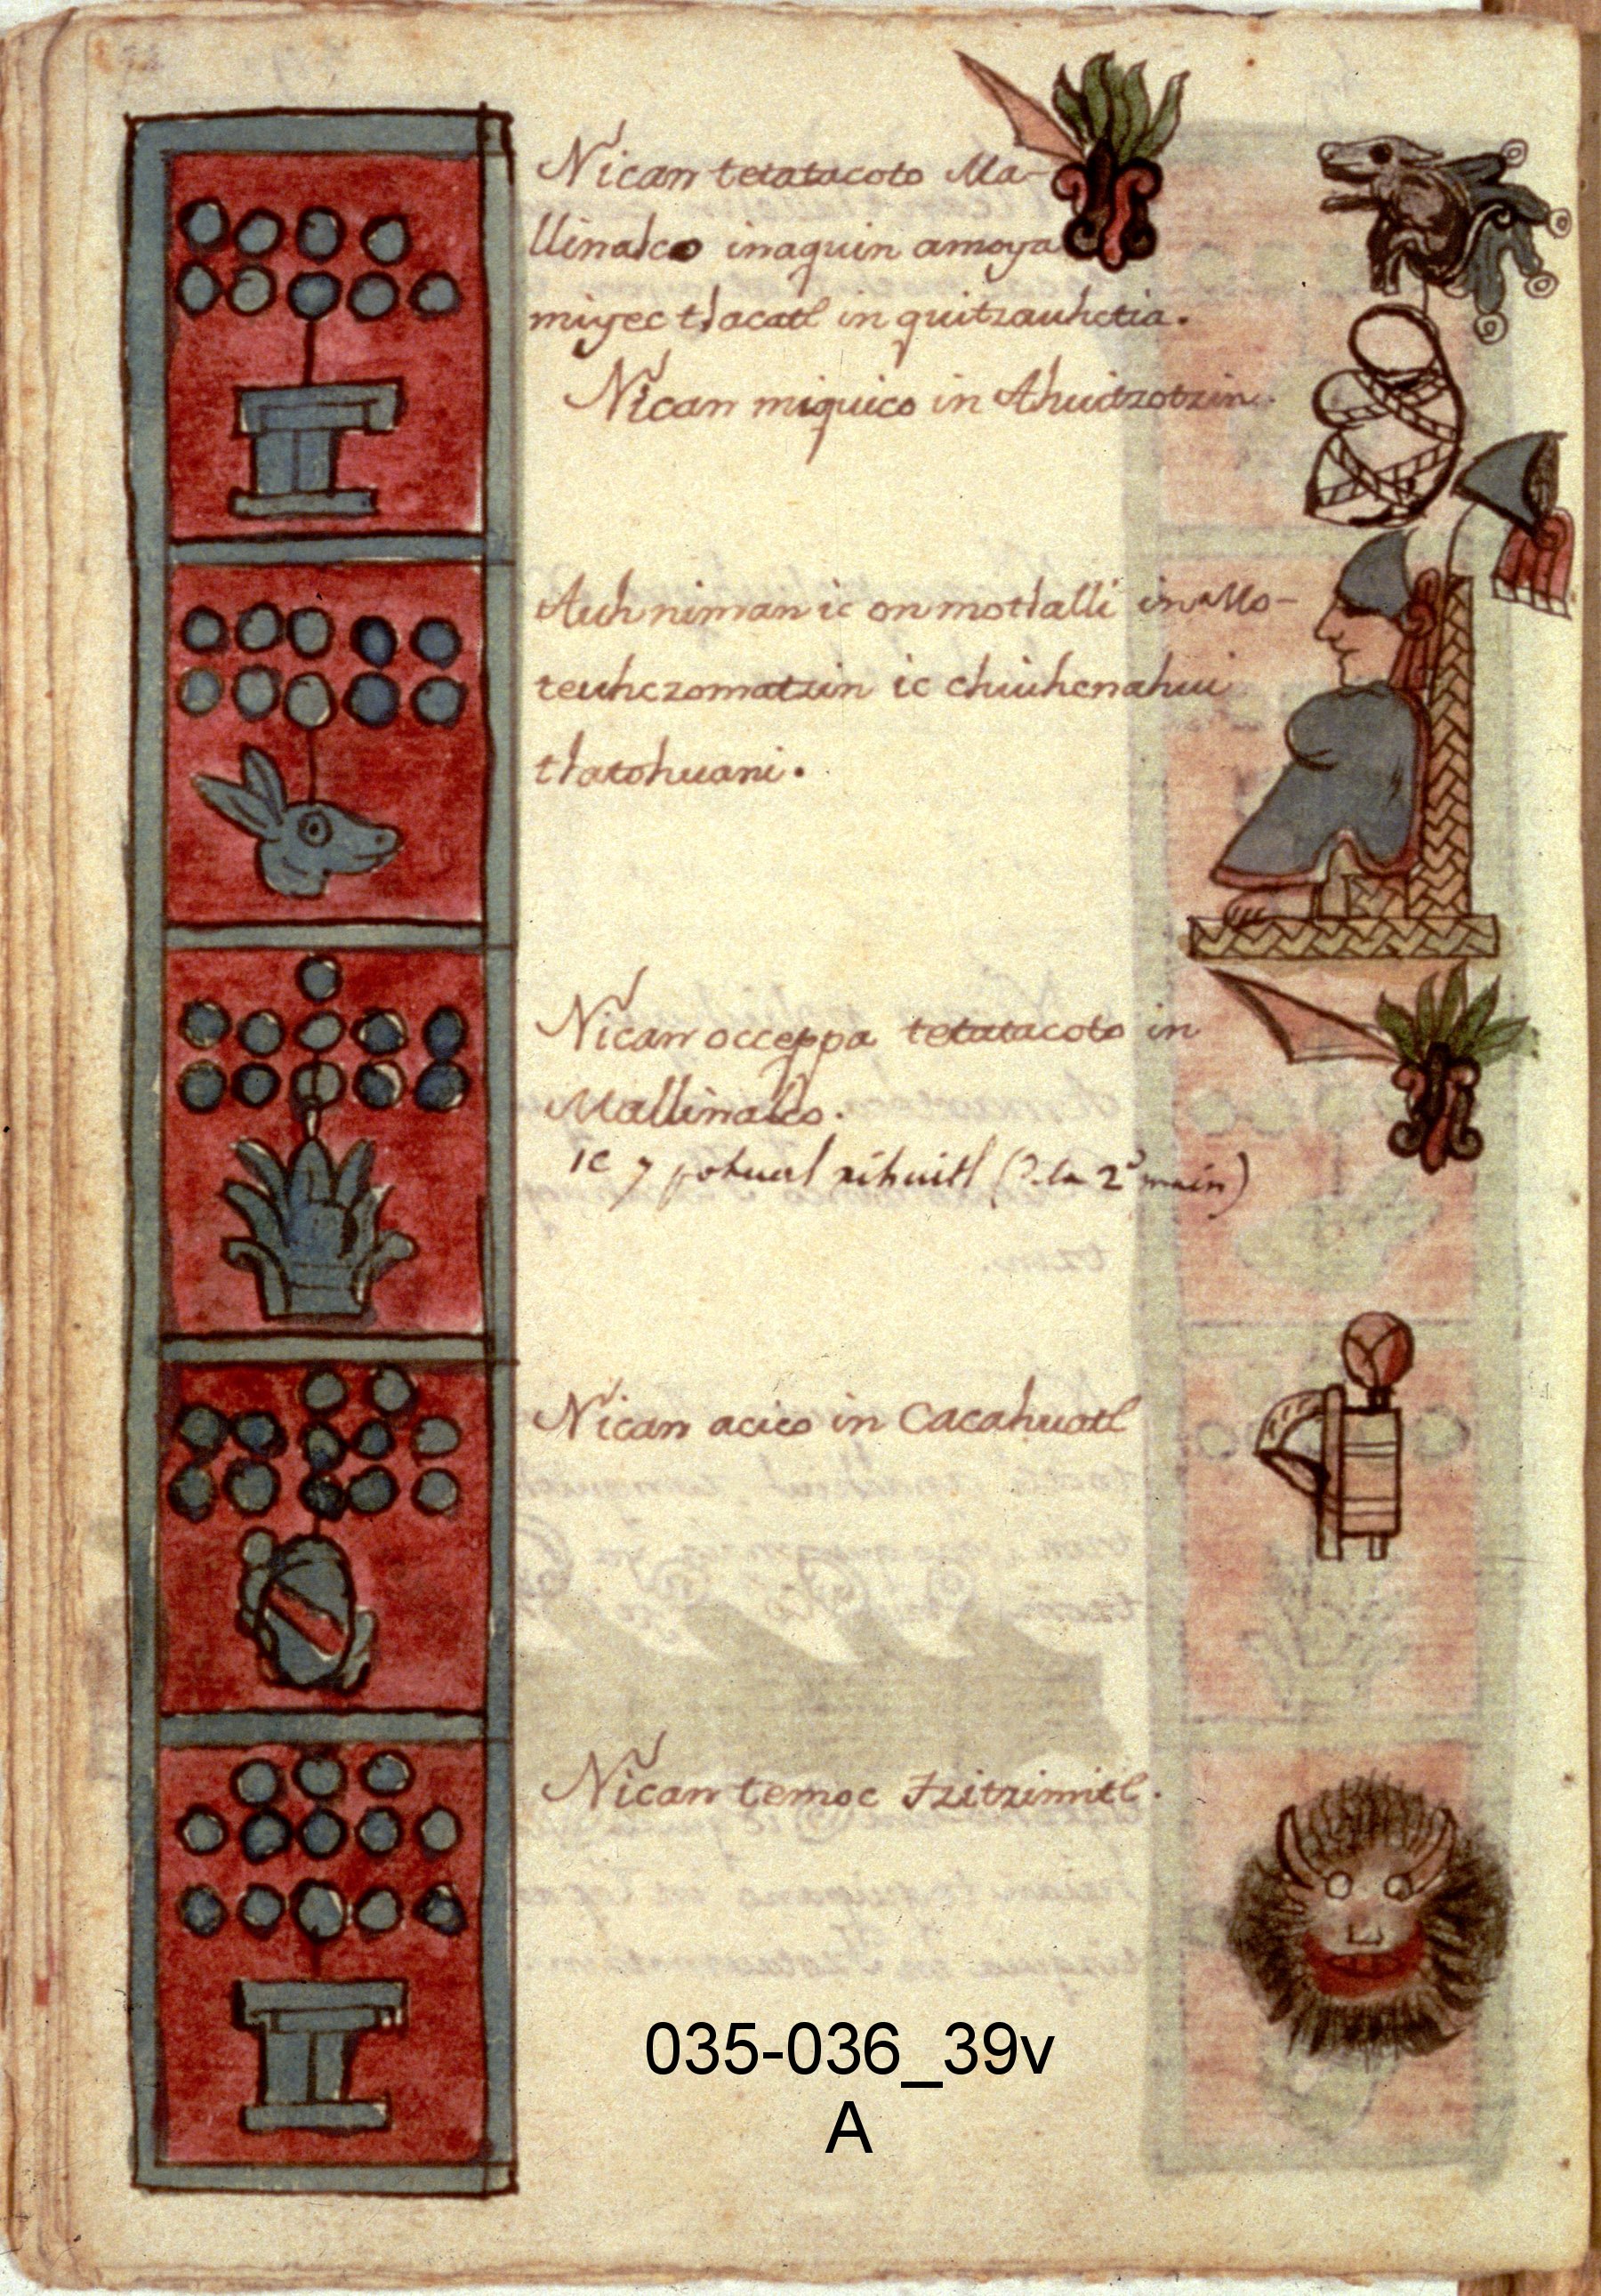 Nican tetatacoto Ma-
llinalco inaquin amoya
miyec tlacatl in quitzauhctia.
Nican miquico in Ahuitzotzin.
Auh niman ic on motlalli in Mo-
teuhczomatzin ic chiuhcnahui
tlatohuani.
Nican occeppa tetatacoto in
Mallinalco.
ic 7 pohual xihuitl (? la 2e main)
Nican acico in Cacahuatl
Nican temoc Tzitzimitl.
035-036_39v
A